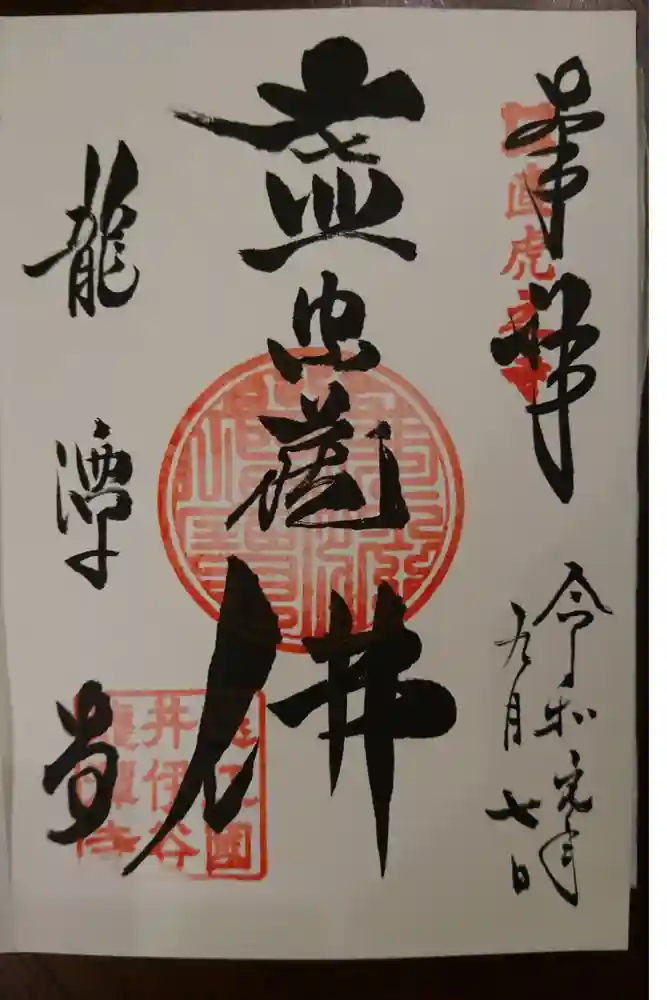 奉拝
直虎之寺
令和元年
九月七日
虚空蔵佛
龍潭寺
遠江國
井伊谷
龍潭寺